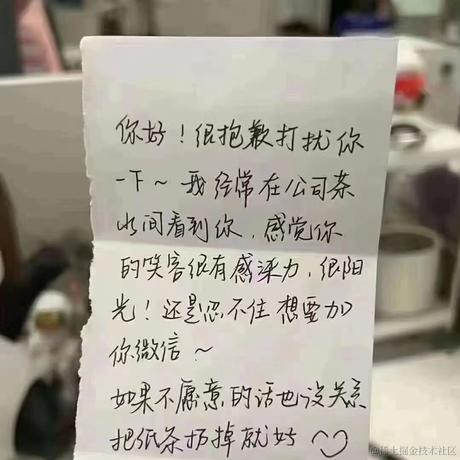 你好！很抱歉打扰你
一下～我经常在公司茶
水间看到你，感觉你
的笑容很有感染力，很阳
光！还是忍不住想要加
你微信～
如果不愿意的话也没关系
把纸条扔掉就好
@稀土掘金技术社区